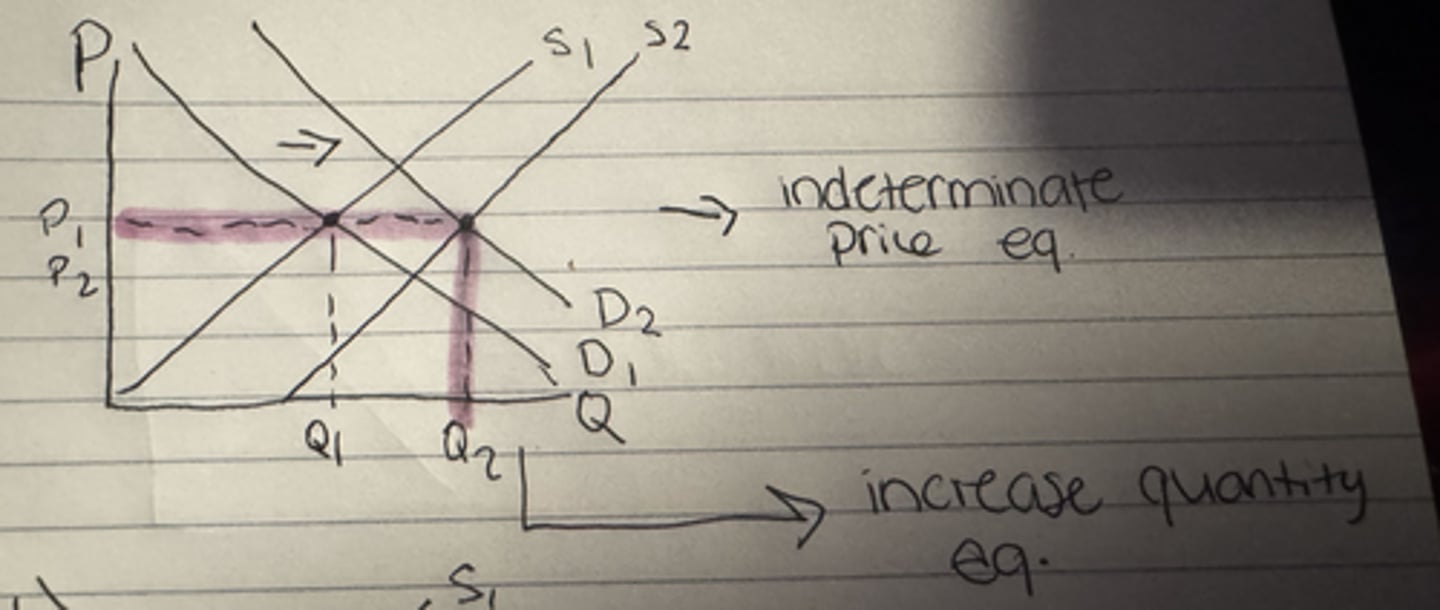 P
S1
S2
→
P1
P2
→ indeterminate
price eq.
D2
D1
Q
Q1
Q2
increase quantity
eq.
S1